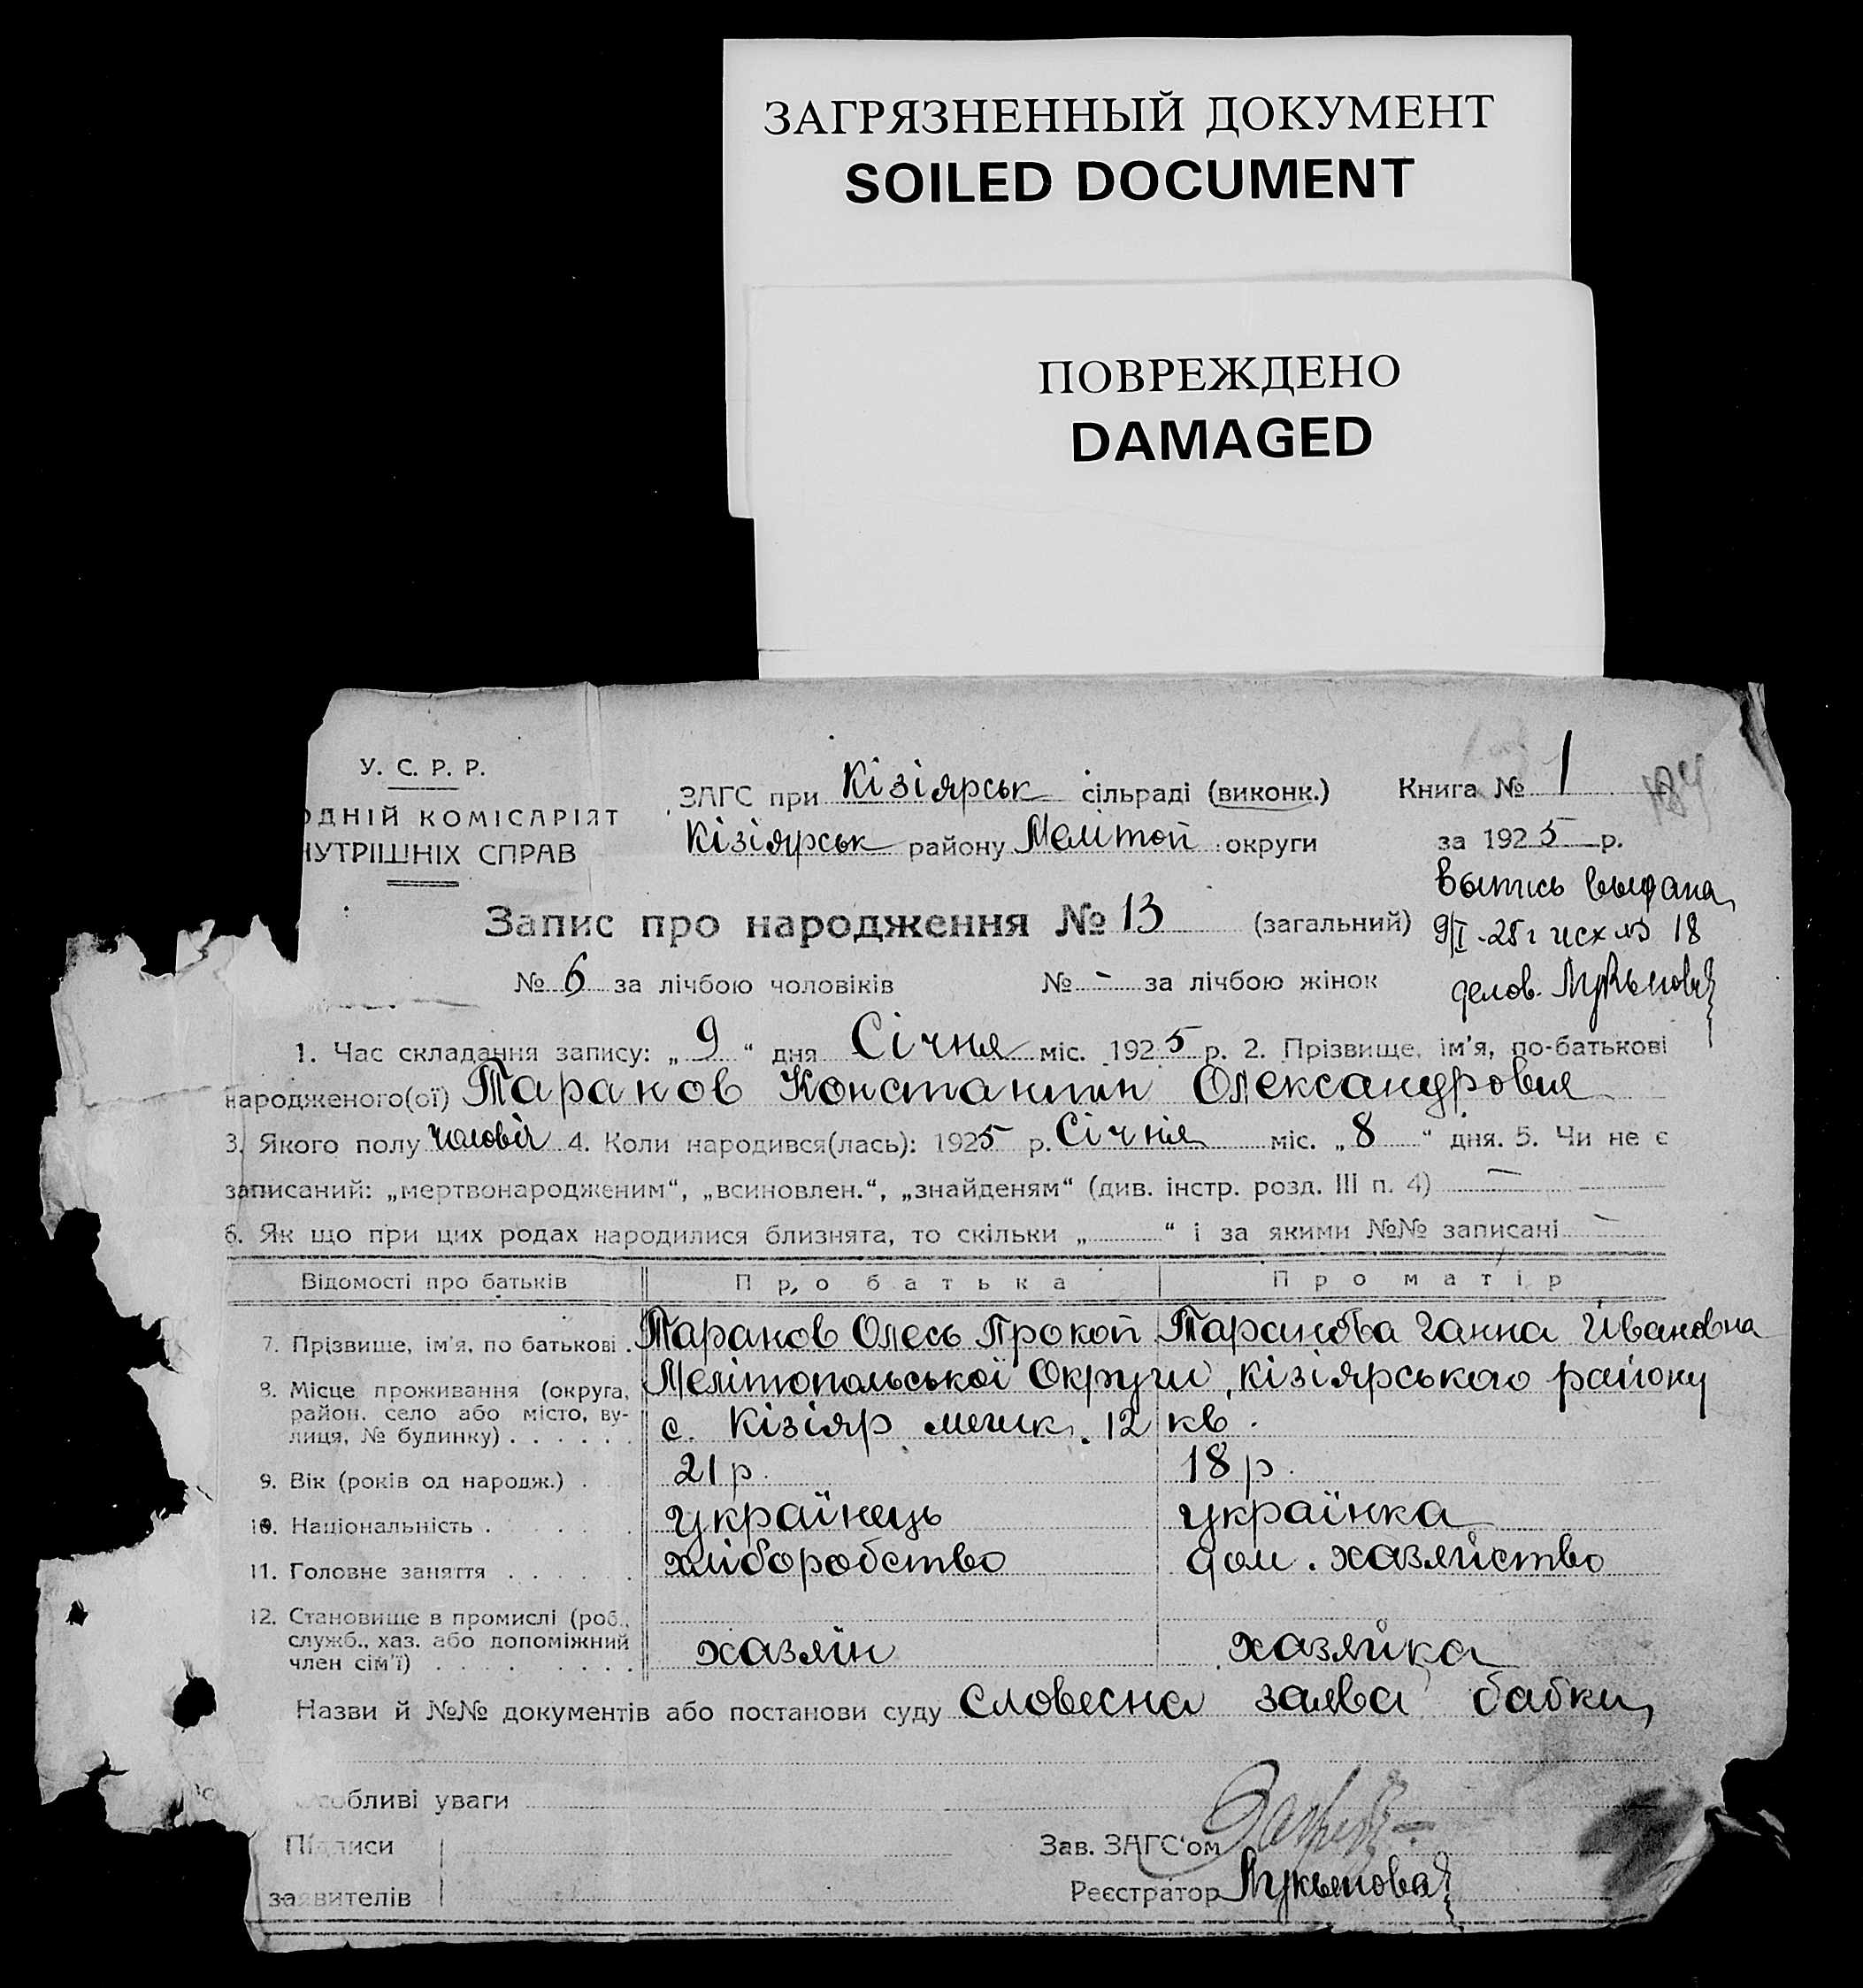 ЗАГРЯЗНЕННЫЙ ДОКУМЕНТ
SOILED DOCUMENT
ПОВРЕЖДЕНО
DAMAGED
У. С. Р. Р.
ОДНІЙ КОМІСАРІЯТ
НУТРІШНІХ СПРАВ
ЗАГС при Кізіярськ сільраді (виконк.) Книга № 1
Кізіярськ району Мелітоп округи за 1925 р.
Выпись выдана
9/I-25 г исх № 18
делов.
Запис про народження № 13 (загальний)
№ 6 за лічбою чоловіків № - за лічбою жінок
1. Час складання запису: „ 9 “ дня Січня міс. 1925 р. 2. Прізвище, ім'я, по-батькові
народженого(ої) Таранов Константин Олександровия
3. Якого полу чоловіч 4. Коли народився(лась): 1925 р. Січня міс. „ 8 “ дня. 5. Чи не є
записаний: „мертвонародженим“, „всиновлен.“, „знайденям“ (див. інстр. розд. III п. 4) —
6. Як що при цих родах народилися близнята, то скільки „ “ і за якими №№ записані —
Відомості про батьків Про батька Про матір
7. Прізвище, ім'я, по батькові . Таранов Олесь Прокоп Таранова Ганна Ивановна
8. Місце проживання (округа, Мелітопольської Округи, Кізіярського району
район, село або місто, ву-
лиця, № будинку) . . . . . . с. Кізіяр мешк. 12 кв.
9. Вік (років од народж.) . 21 р. 18 р.
10. Національність . . . . . . українець українка
11. Головне заняття . . . . . . хліборобство дом. хазяйство
12. Становище в промислі (роб.,
служб., хаз. або допоміжний
член сім'ї) . . . . . . . . . хазяїн хазяйка
Назви й №№ документів або постанови суду Словесна заява бабки
Особливі уваги
Підписи Зав. ЗАГС'ом
заявителів Реєстратор